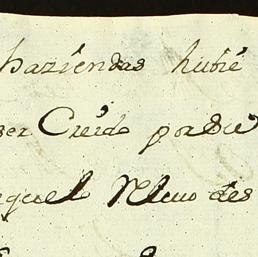 haziendas hubié
ser Creido por su
aquelo Nluo des